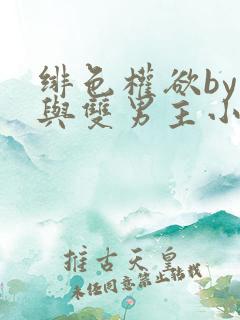 緋色權欲by
與雙男主小
推古天皇
未經同意禁止轉載